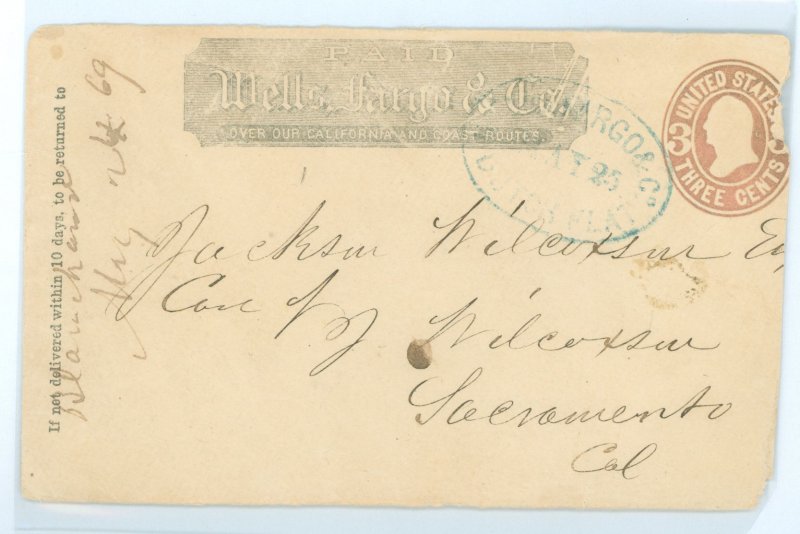 PAID
Wells, Fargo & Co.
OVER OUR CALIFORNIA AND COAST ROUTES.
FARGO & Co
25
DUTCH FLAT
UNITED STATES
3
THREE CENTS
If not delivered within 10 days, to be returned to
69
Jackson Wilcoxson Esq
Care Wilcoxson
Sacramento
Cal